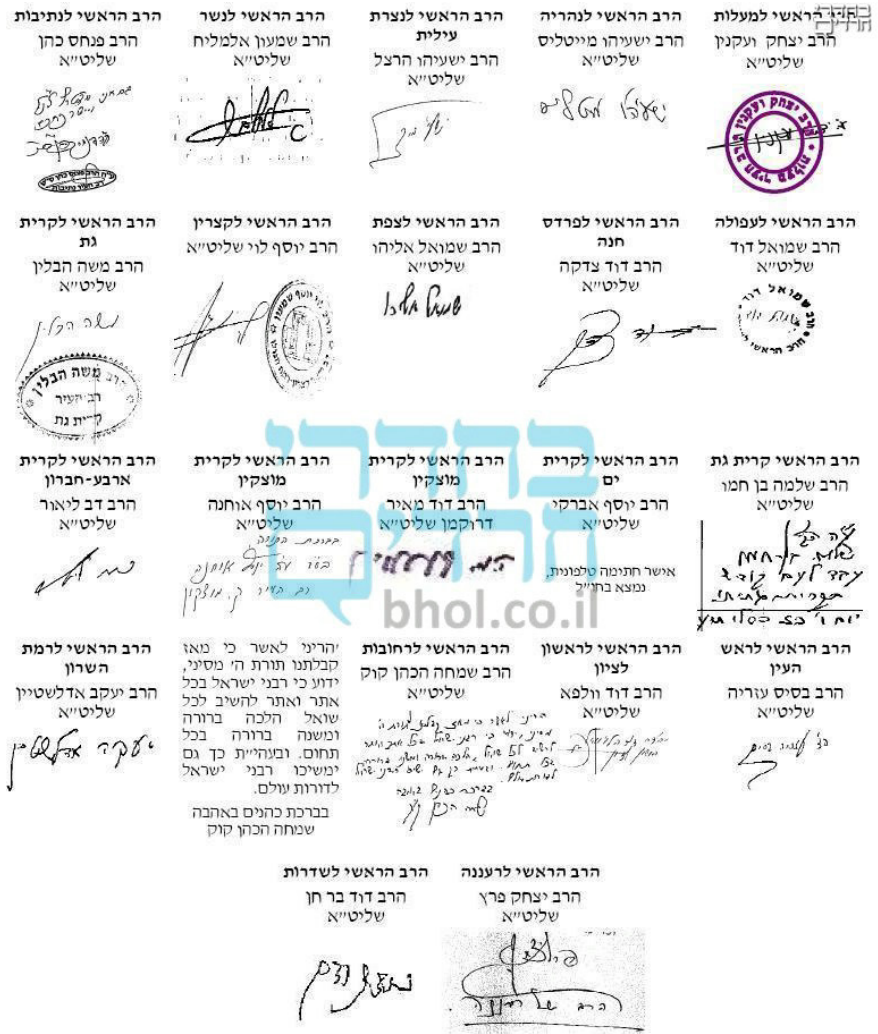 בחדרי חרדים
הרב הראשי למעלות
הרב יצחק ועקנין
שליט״א
הרב יצחק ועקנין הרב העיר מעלות
הרב הראשי לנהריה
הרב ישעיהו מייטליס
שליט״א
הרב הראשי לנצרת
עילית
הרב ישעיהו הרצל
שליט״א
הרב הראשי לנשר
הרב שמעון אלמליח
שליט״א
הרב הראשי לנתיבות
הרב פנחס כהן
שליט״א
הרב הראשי לעפולה
הרב שמואל דוד
שליט״א
הרב שמואל דוד
הרב הראשי
הרב הראשי לפרדס
חנה
הרב דוד צדקה
שליט״א
הרב הראשי לצפת
הרב שמואל אליהו
שליט״א
שמואל אליהו
הרב הראשי לקצרין
הרב יוסף לוי שליט״א
הרב הראשי לקרית
גת
הרב משה הבלין
שליט״א
משה הבלין
הרב משה הבלין
רב העיר
קרית גת
הרב הראשי קרית גת
הרב שלמה בן חמו
שליט״א
הרב הראשי לקרית
ים
הרב יוסף אברקי
שליט״א
אישר חתימה טלפונית,
נמצא בחו״ל
הרב הראשי לקרית
מוצקין
הרב דוד מאיר
דרוקמן שליט״א
הרב הראשי לקרית
מוצקין
הרב יוסף אוחנה
שליט״א
בברכת התורה
הרב הראשי לקרית
ארבע-חברון
הרב דב ליאור
שליט״א
בחדרי
חרדים
bhol.co.il
הרב הראשי לראש
העין
הרב בסיס עזריה
שליט״א
הרב הראשי לראשון
לציון
הרב דוד וולפא
שליט״א
הרב הראשי לרחובות
הרב שמחה הכהן קוק
שליט״א
׳הריני לאשר כי מאז
קבלתנו תורת ה׳ מסיני,
ידוע כי רבני ישראל בכל
אתר ואתר להשיב לכל
שואל הלכה ברורה
ומשנה ברורה בכל
תחום. ובעהי״ת כך גם
ימשיכו רבני ישראל
לדורות עולם.
בברכת כהנים באהבה
שמחה הכהן קוק
הרב הראשי לרמת
השרון
הרב יעקב אדלשטיין
שליט״א
יעקב אדלשטיין
הרב הראשי לרעננה
הרב יצחק פרץ
שליט״א
הרב הראשי לשדרות
הרב דוד בר חן
שליט״א